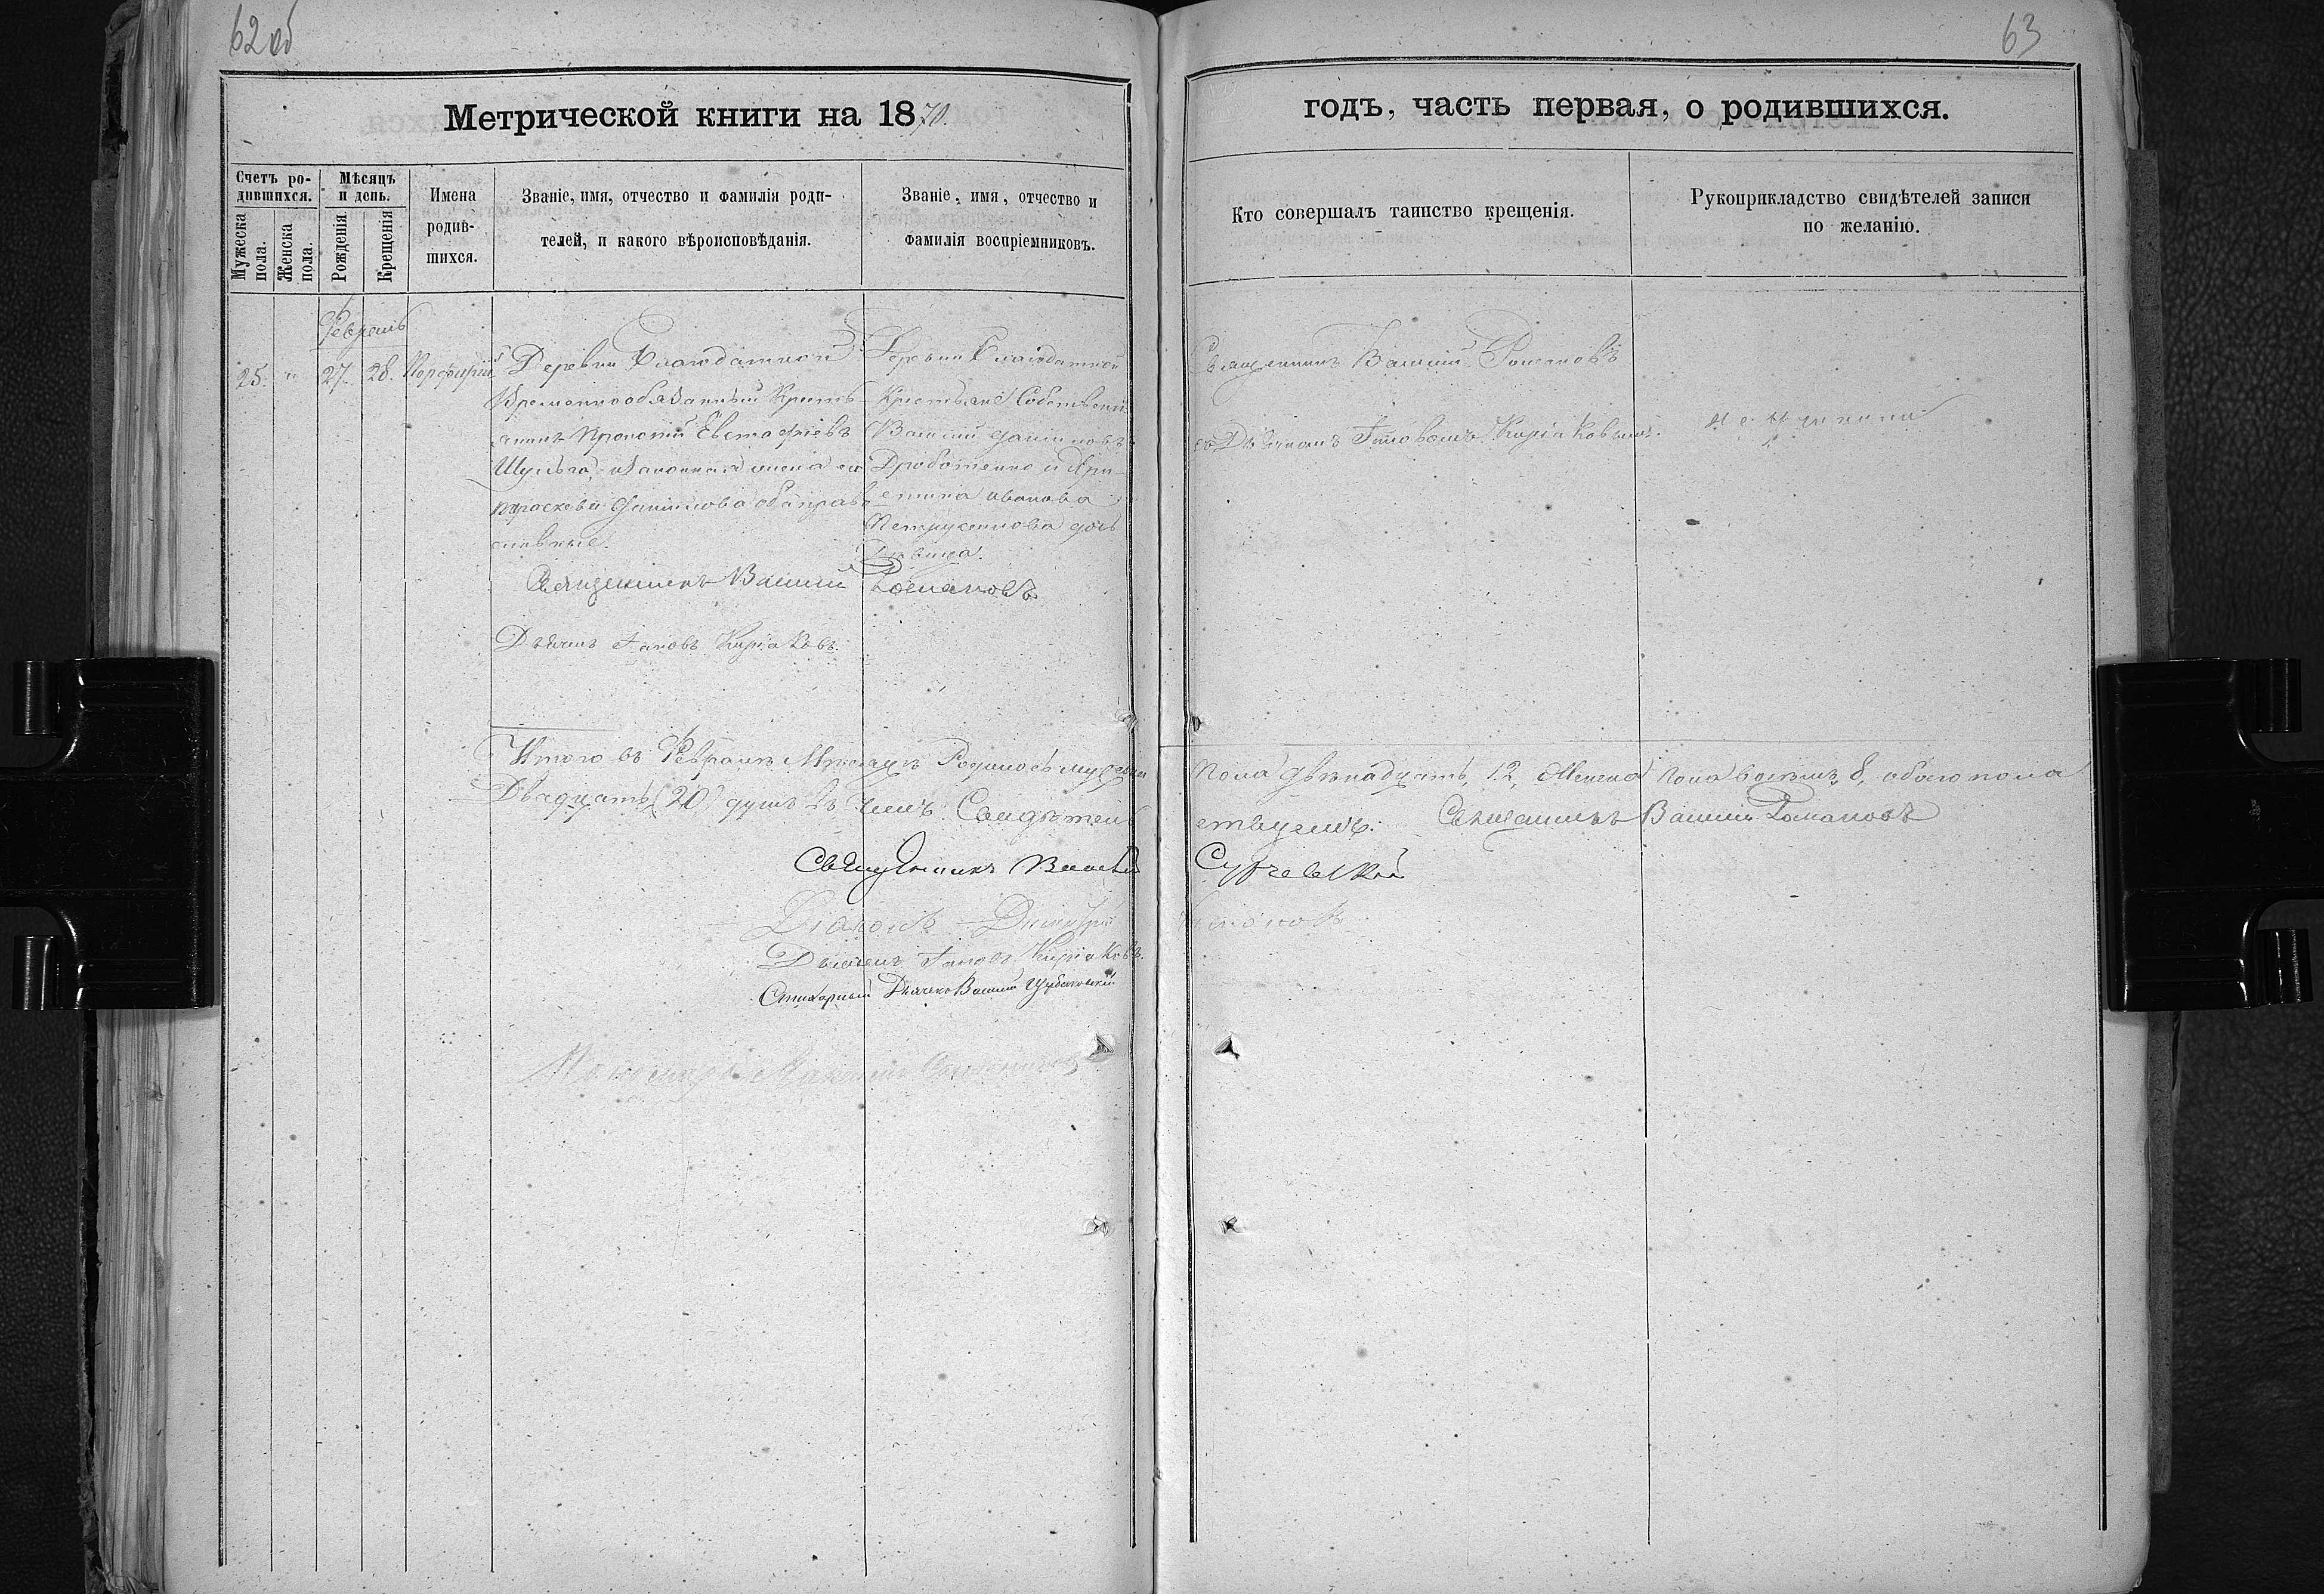 62 об
63
Метрической книги на 1870.
годъ, часть первая, о родившихся.
Счетъ родившихся.
Мужеска пола.
Женска пола.
Мѣсяцъ и день.
Рожденія
Крещенія
Имена родившихся.
Званіе, имя, отчество и фамилія родителей, и какого вѣроисповѣданія.
Званіе, имя, отчество и фамилія воспріемниковъ.
Кто совершалъ таинство крещенія.
Рукоприкладство свидѣтелей записи по желанію.
Февраль
25. " 27. 28. Порфирій
Деревни Благодатной
Временнообязанный Кресть-
янинъ Прокопій Евстафіевъ
Шульга, и законная жена его
Параскева Данилова оба право
славные.
Деревни Благодатной
Крестьяне Собственн
Василій Даниловъ
Дроботенко и Хри-
стина Иванова
дочь
Дѣвица.
Священникъ Василій Романовъ
съ Дьячкомъ Іаковомъ Киріаковымъ.
Священникъ Василій Романовъ
Дьячекъ Іаковъ Киріаковъ.
Итого въ Февралѣ Мѣсяцѣ Родилось мужеска пола двѣнадцать, 12, Женска пола восемь, 8, обоего пола
Двадцать (20) душъ въ чемъ Свидѣтельствуемъ: Священникъ Василій Романовъ
Священникъ Василій
Діаконъ Димитрій
Дьячекъ Іаковъ Киріаковъ.
Стихарный Дьячекъ Василій
Пономарь